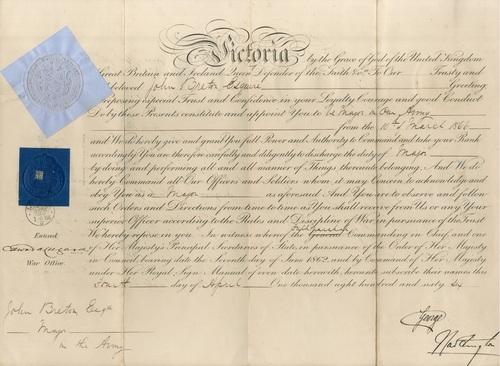 Victoria by the Grace of God of the United Kingdom
Great Britain and Ireland Queen Defender of the Faith &c. To Our Trusty and
beloved John Breton Esquire Greeting
reposing especial Trust and Confidence in your Loyalty Courage and good Conduct
Do by these Presents constitute and appoint You to be Major in Our Army
from the 10th March 1866
and We do hereby give and grant you full Power and Authority to Command and take your Rank
accordingly You are therefore carefully and diligently to discharge the duty of Major
by doing and performing all and all manner of Things thereunto belonging. And We do
hereby Command all Our Officers and Soldiers whom it may Concern to acknowledge and
obey You as a Major as aforesaid And You are to observe and follow
such Orders and Directions from time to time as You shall receive from Us or any Your
superior Officer according to the Rules and Discipline of War in pursuance of the Trust
We hereby repose in you. In witness whereof the General Commanding in Chief and one
Entered
of Her Majesty's Principal Secretaries of State in pursuance of the Order of Her Majesty
War Office
in Council bearing date the Seventh day of June 1862, and by Command of Her Majesty
under Her Royal Sign Manual of even date herewith, hereunto subscribe their names this
fourth day of April One thousand eight hundred and sixty six
John Breton Esqr
Major
in the Army
George
Hartington